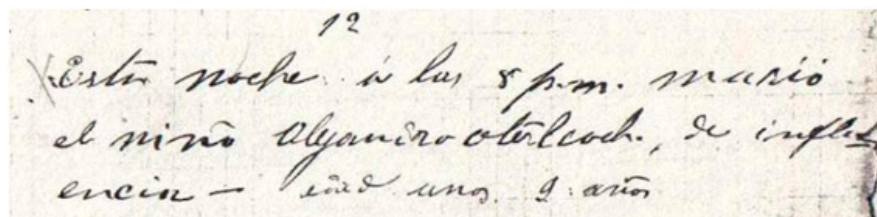 12
Esta noche á las 8 p.m. murió
el niño Alejandro de influ
encia – edad unos 2 años